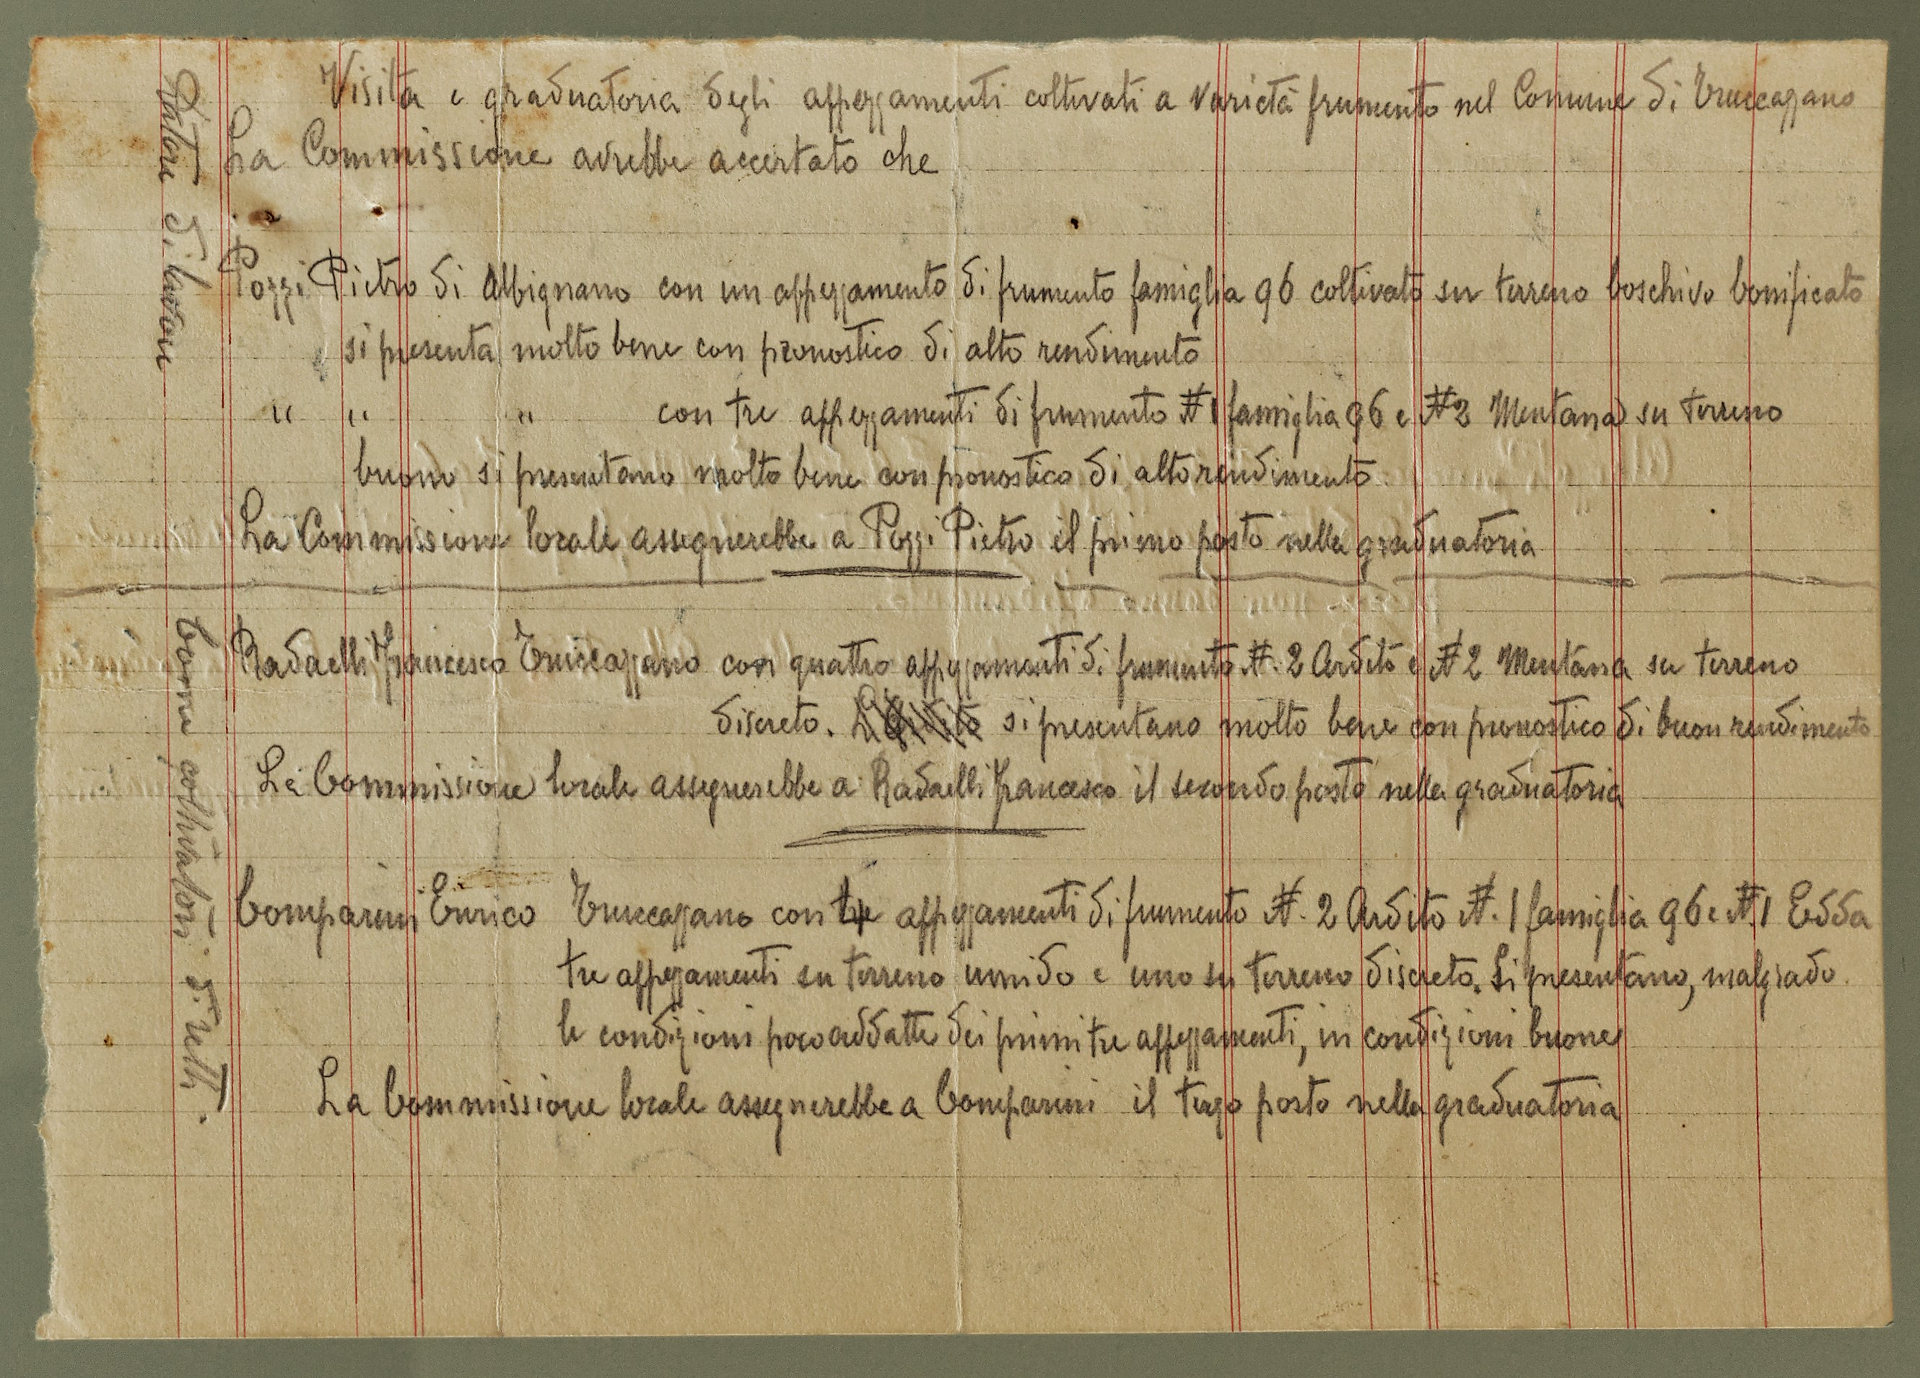 Visita e graduatoria degli appezzamenti coltivati a varietà frumento nel Comune di Truccazzano
La Commissione avrebbe accertato che
Pozzi Pietro di Albignano con un appezzamento di frumento famiglia 96 coltivato su terreno boschivo bonificato
si presenta molto bene con pronostico di alto rendimento
" " " con tre appezzamenti di frumento N 1 famiglia 96 e N 2 Mentana su terreno
buono si presentano molto bene con pronostico di alto rendimento
La Commissione locale assegnerebbe a Pozzi Pietro il primo posto nella graduatoria
Radaelli Francesco Truccazzano con quattro appezzamenti di frumento N. 2 Ardito e N 2 Mentana su terreno
discreto. si presentano molto bene con pronostico di buon rendimento
La Commissione locale assegnerebbe a Radaelli Francesco il secondo posto nella graduatoria
Comparini Enrico Truccazzano con appezzamenti di frumento N. 2 Ardito N. 1 famiglia 96 e N. 1 Edda
tre appezzamenti su terreno umido e uno su terreno discreto. Si presentano, malgrado
le condizioni poco addatte dei primi tre appezzamenti, in condizioni buone
La Commissione locale assegnerebbe a Comparini il terzo posto nella graduatoria
datore di lavoro
Come coltivatori diretti.